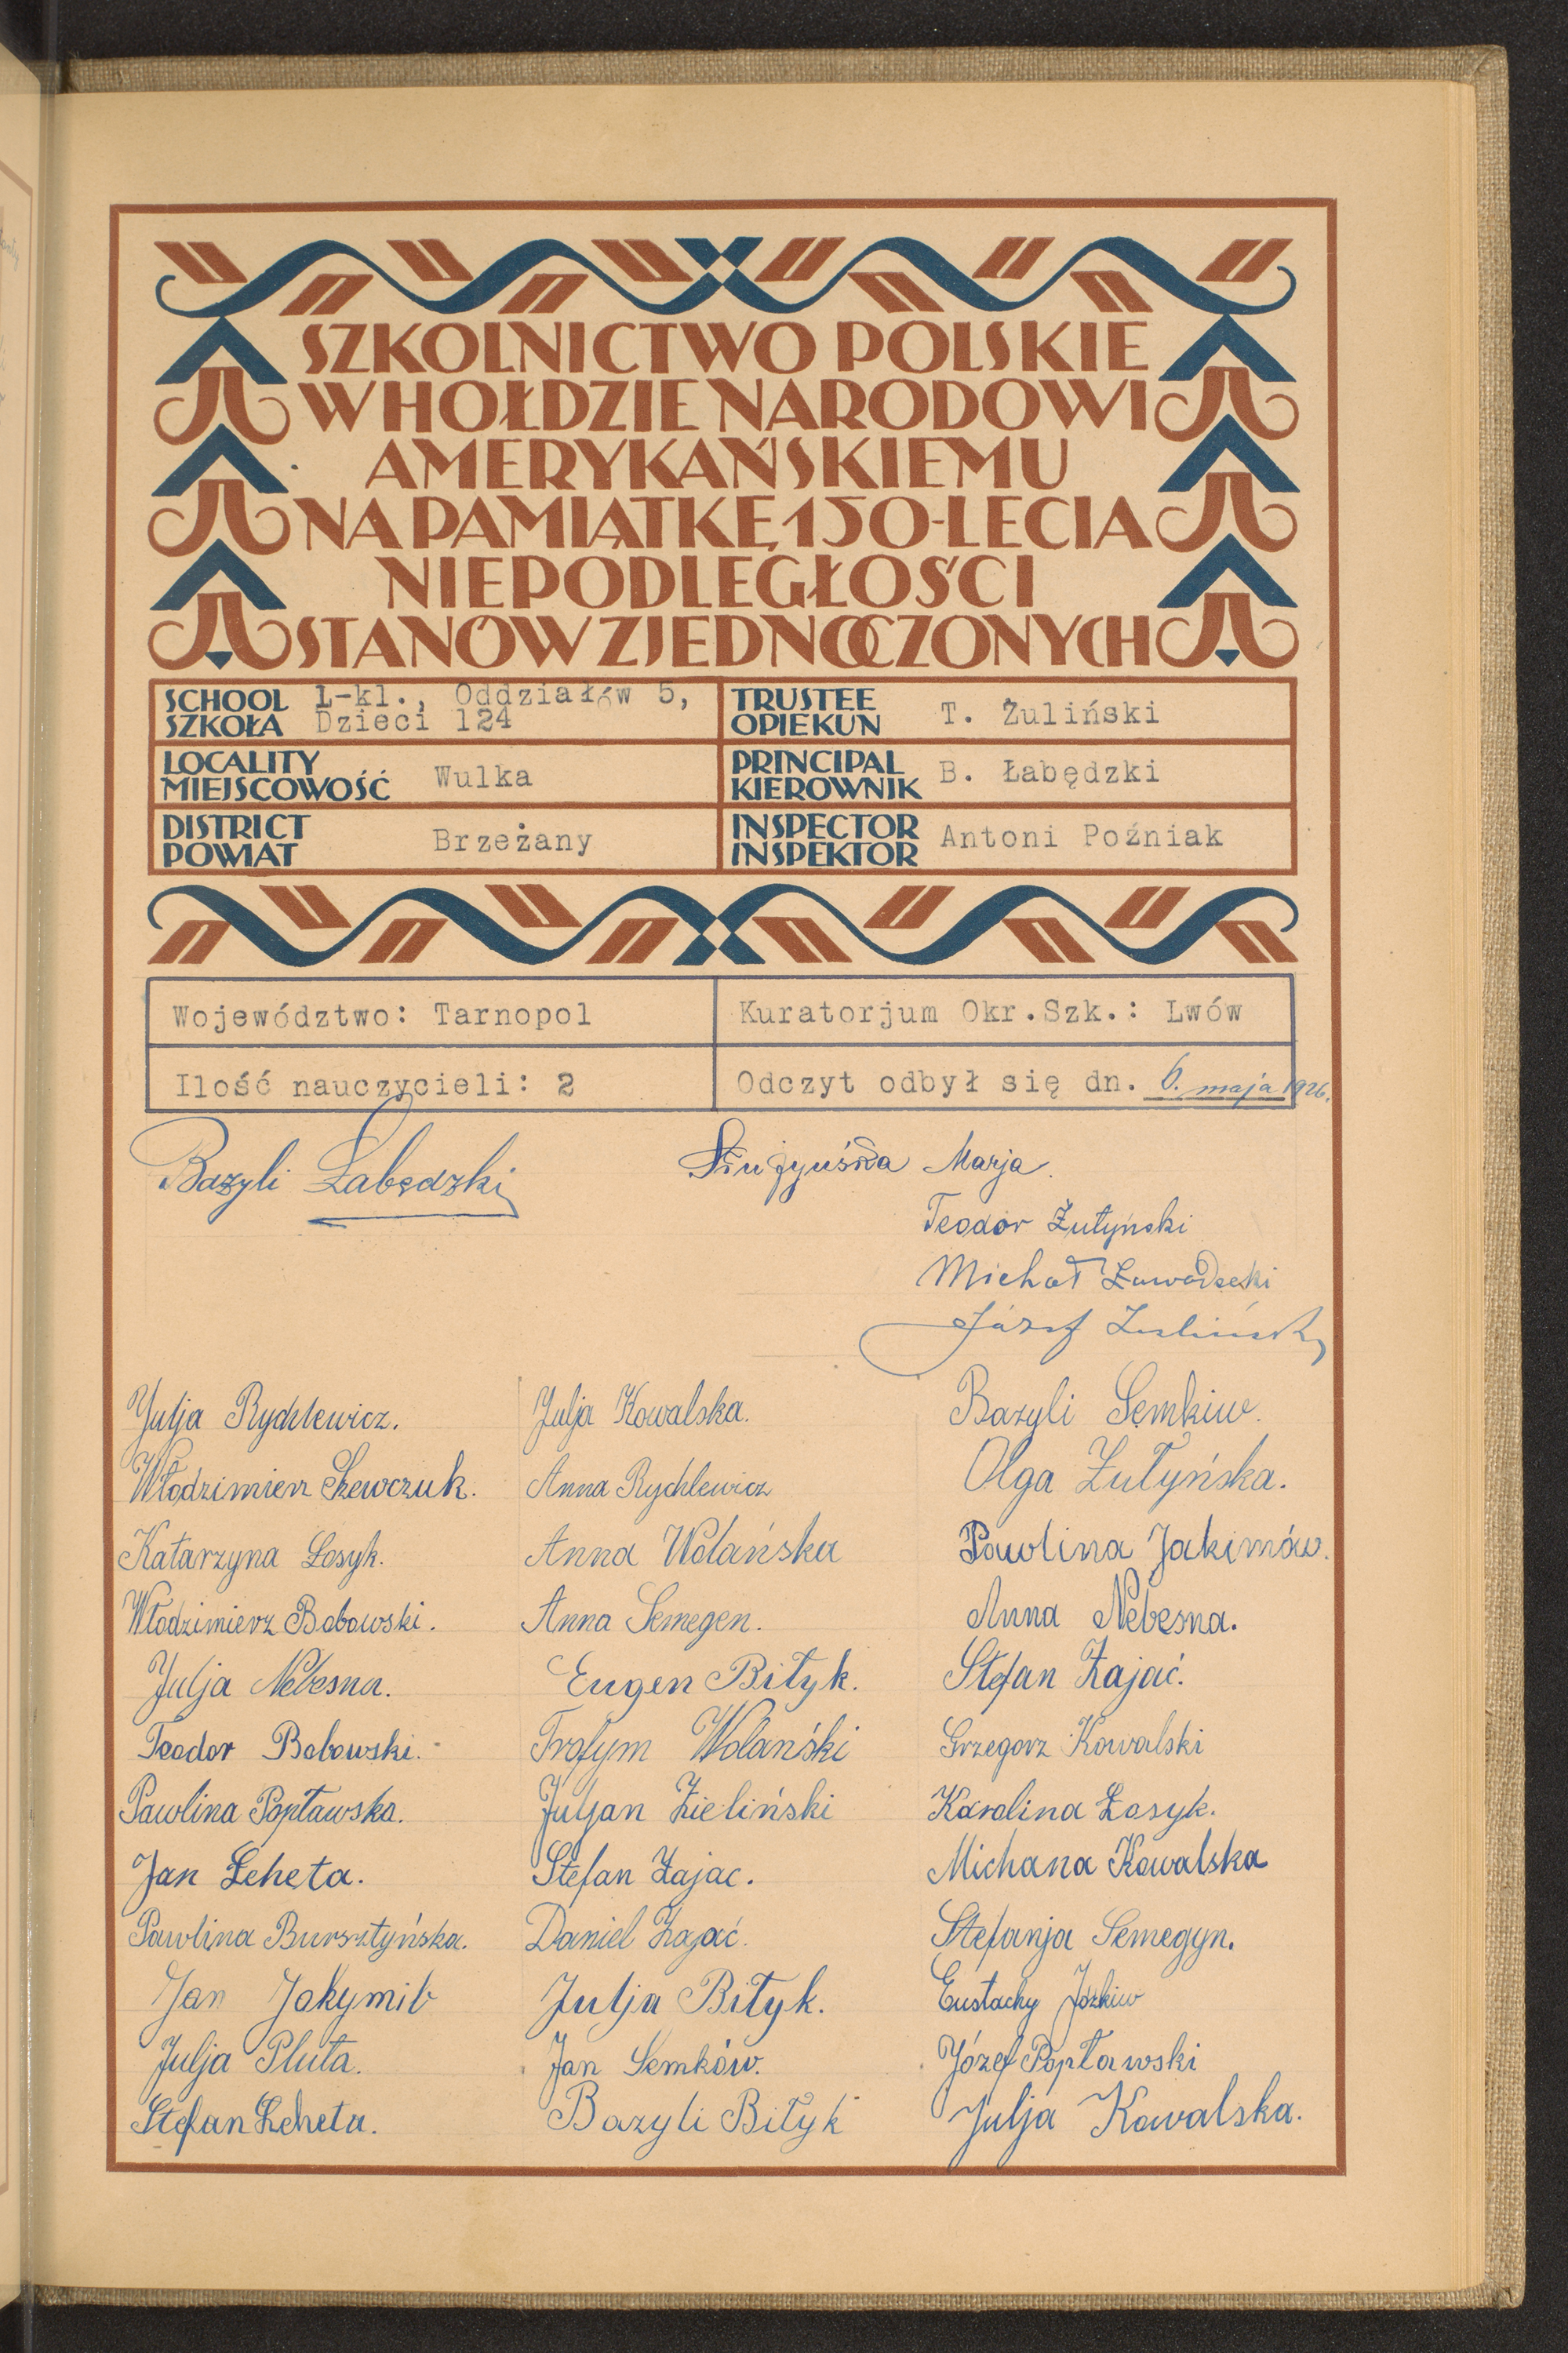 SZKOLNICTWO POLSKIE
W HOŁDZIE NARODOWI
AMERYKAŃSKIEMU
NA PAMIĄTKĘ 150-LECIA
NIEPODLEGŁOŚCI
STANÓW ZJEDNOCZONYCH
SCHOOL SZKOŁA 1-kl., Oddziałów 5, Dzieci 124
TRUSTEE OPIEKUN T. Żuliński
LOCALITY MIEJSCOWOŚĆ Wulka
PRINCIPAL KIEROWNIK B. Łabędzki
DISTRICT POWIAT Brzeżany
INSPECTOR INSPEKTOR Antoni Poźniak
Województwo: Tarnopol
Kuratorjum Okr.Szk.: Lwów
Ilość nauczycieli: 2
Odczyt odbył się dn. 6. maja 1926.
Bazyli Łabędzki
Marja.
Teodor Żułyński
Michał
Józef
Julja Rychlewicz.
Julja Kowalska.
Bazyli Semkiw.
Włodzimierz Szewczuk.
Anna Rychlewicz
Olga Żułyńska.
Katarzyna Łosyk.
Anna Wolańska
Pawlina Jakimów.
Włodzimierz Bobowski.
Anna Semegen.
Anna Nebesna.
Julja Nebesna.
Eugen Biłyk.
Stefan Zająć.
Teodor Bobowski.
Trofym Wolański
Grzegorz Kowalski
Pawlina Popławska.
Juljan Zieliński
Karolina Łosyk.
Jan Leheta.
Stefan Zajac.
Michana Kowalska
Pawlina Bursztyńska.
Daniel Zająć.
Stefanja Semegyn.
Jan Jakymib
Julja Biłyk.
Eustachy Józkiw
Julja Pluta.
Jan Semków.
Józef Popławski
Stefan Leheta.
Bazyli Biłyk
Julja Kowalska.